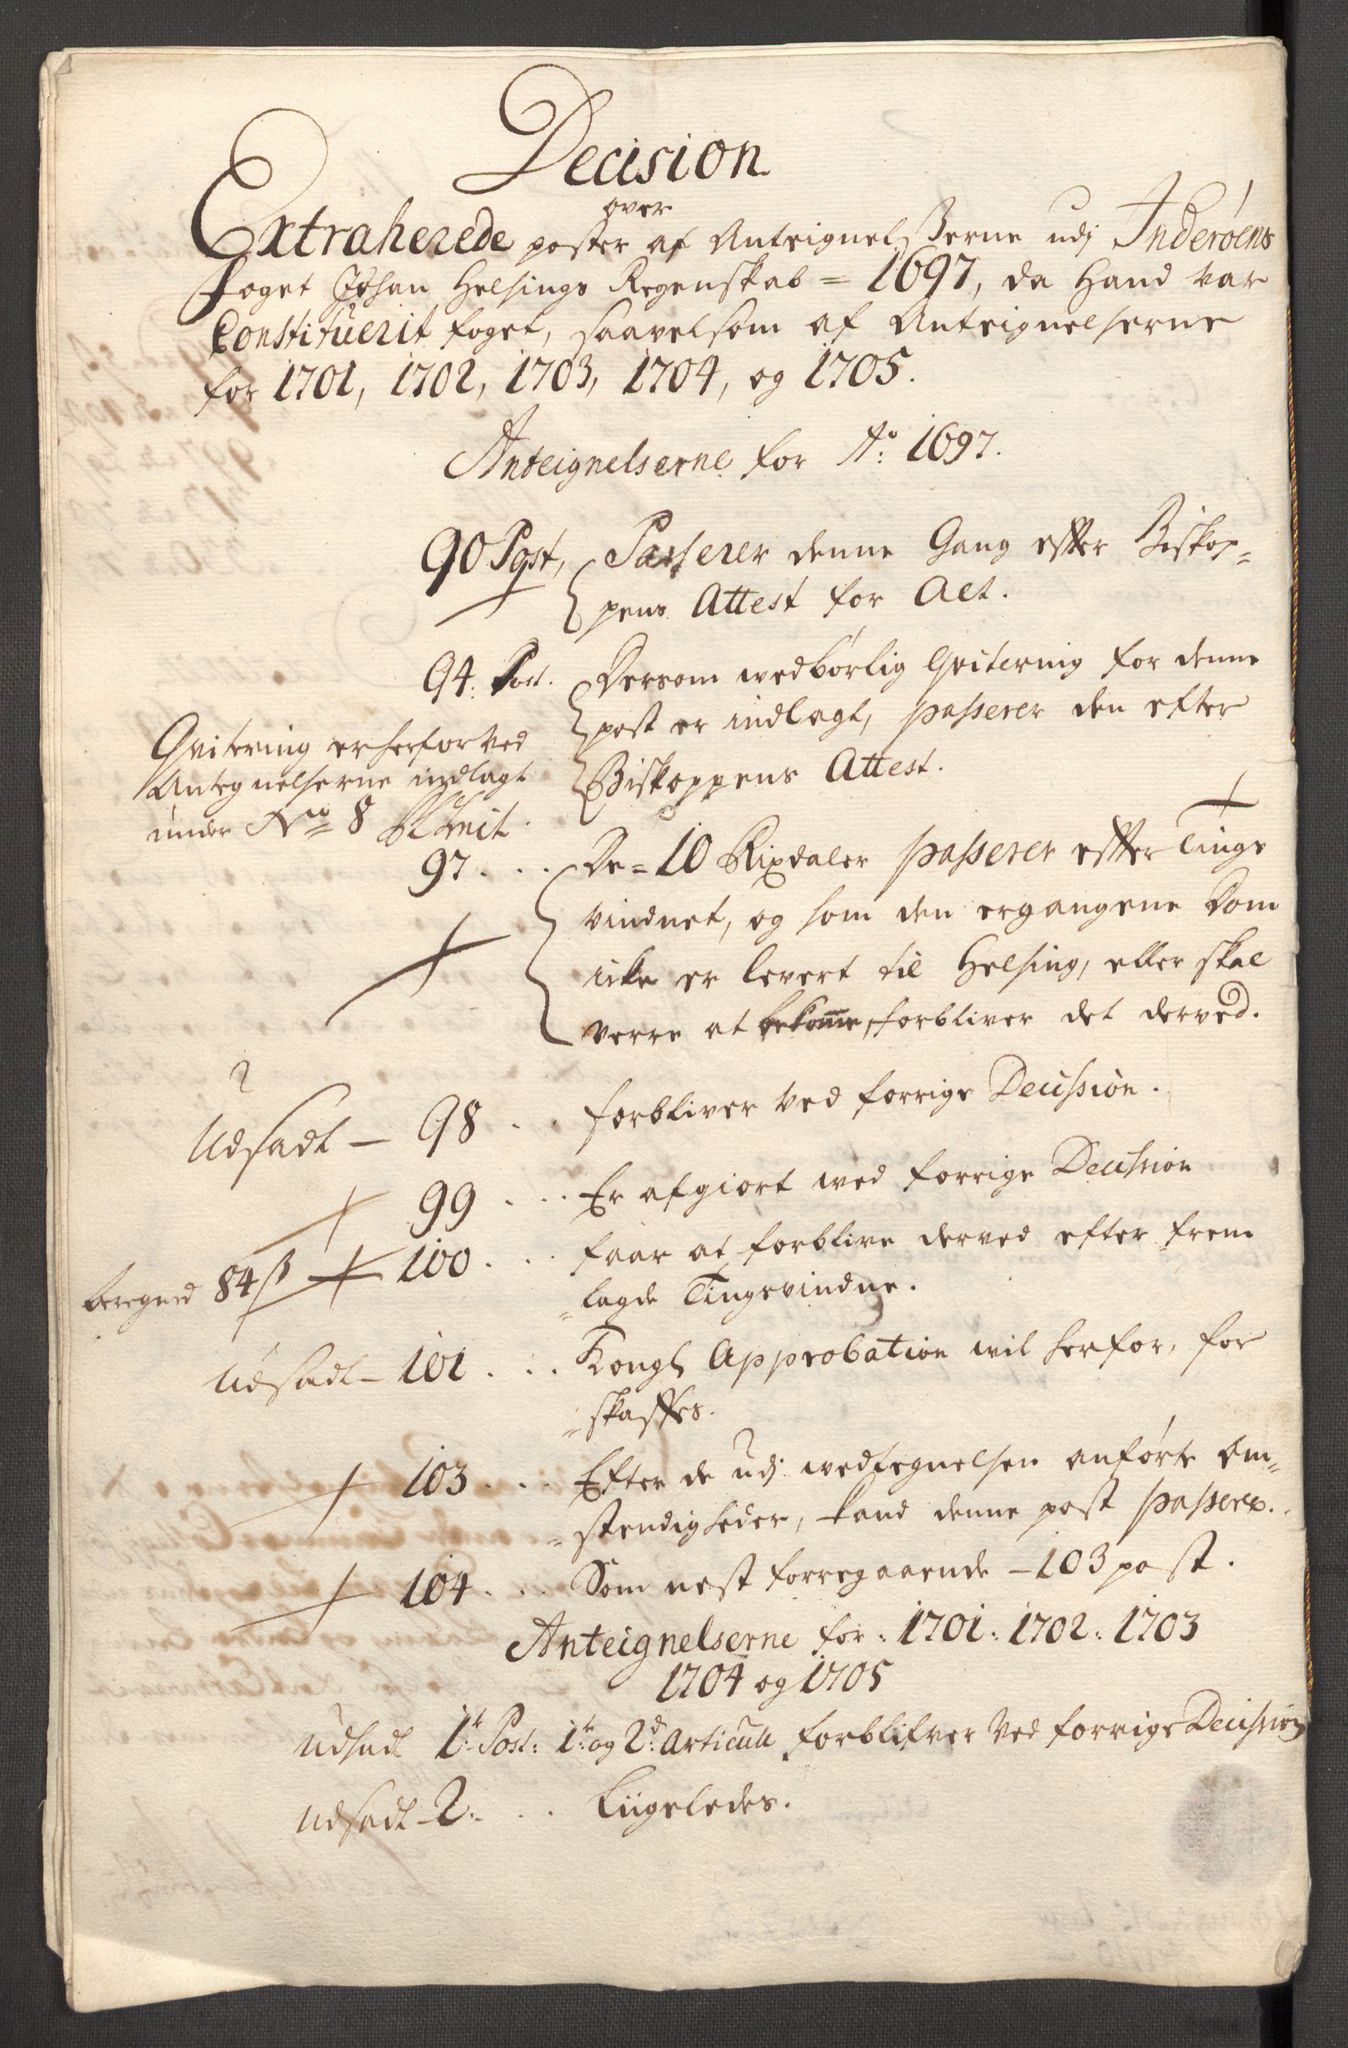 Decision
over
Extraherede poster af Anteignelßerne udj Inderøens
foget Johan Helsings Regenskab = 1697, da Hand var
Constituerit foget, saavelsom af Anteignelserne
for 1701, 1702, 1703, 1704, og 1705.
Anteignelserne for Ao: 1697.
90 Post, Passerer denne Gang effter Biskop-
pens Attest for Alt.
94. Post. Dersom wedbørlig Qvitering for denne
post er indlagt, passerer den efter
Biskoppens Attest.
Qvitering er herfor ved
Antegnelserne indlagt
under No = 8
97. . . De = 10 Rixdaler passerer effter Tings
vindnet, og som den ergangene Dom
icke er levert til Helsing, eller skal
verre at bekomme, forbliver det derved.
Udsadt — 98 . . forbliver ved forrige Decission.
99 . . . Er afgiort wed forrige Decission
beregned 84 ß 100. . . faar at forblive derved efter frem
lagde Tingsvindne.
Udsadt — 101 . . . Kongl Approbation wil herfor, for
skaffes.
103. . . Efter de udj wedtegnelsen anførte Om-
stendigheder, kand denne post passere.
104. . . Som nest forregaaende — 103 post.
Anteignelserne for: 1701: 1702: 1703
1704 og 1705
Udsadt 1t Post: 1t og 2d Articul forblifver ved forrige Decission
Udsadt — 2. . . Liigeledes.